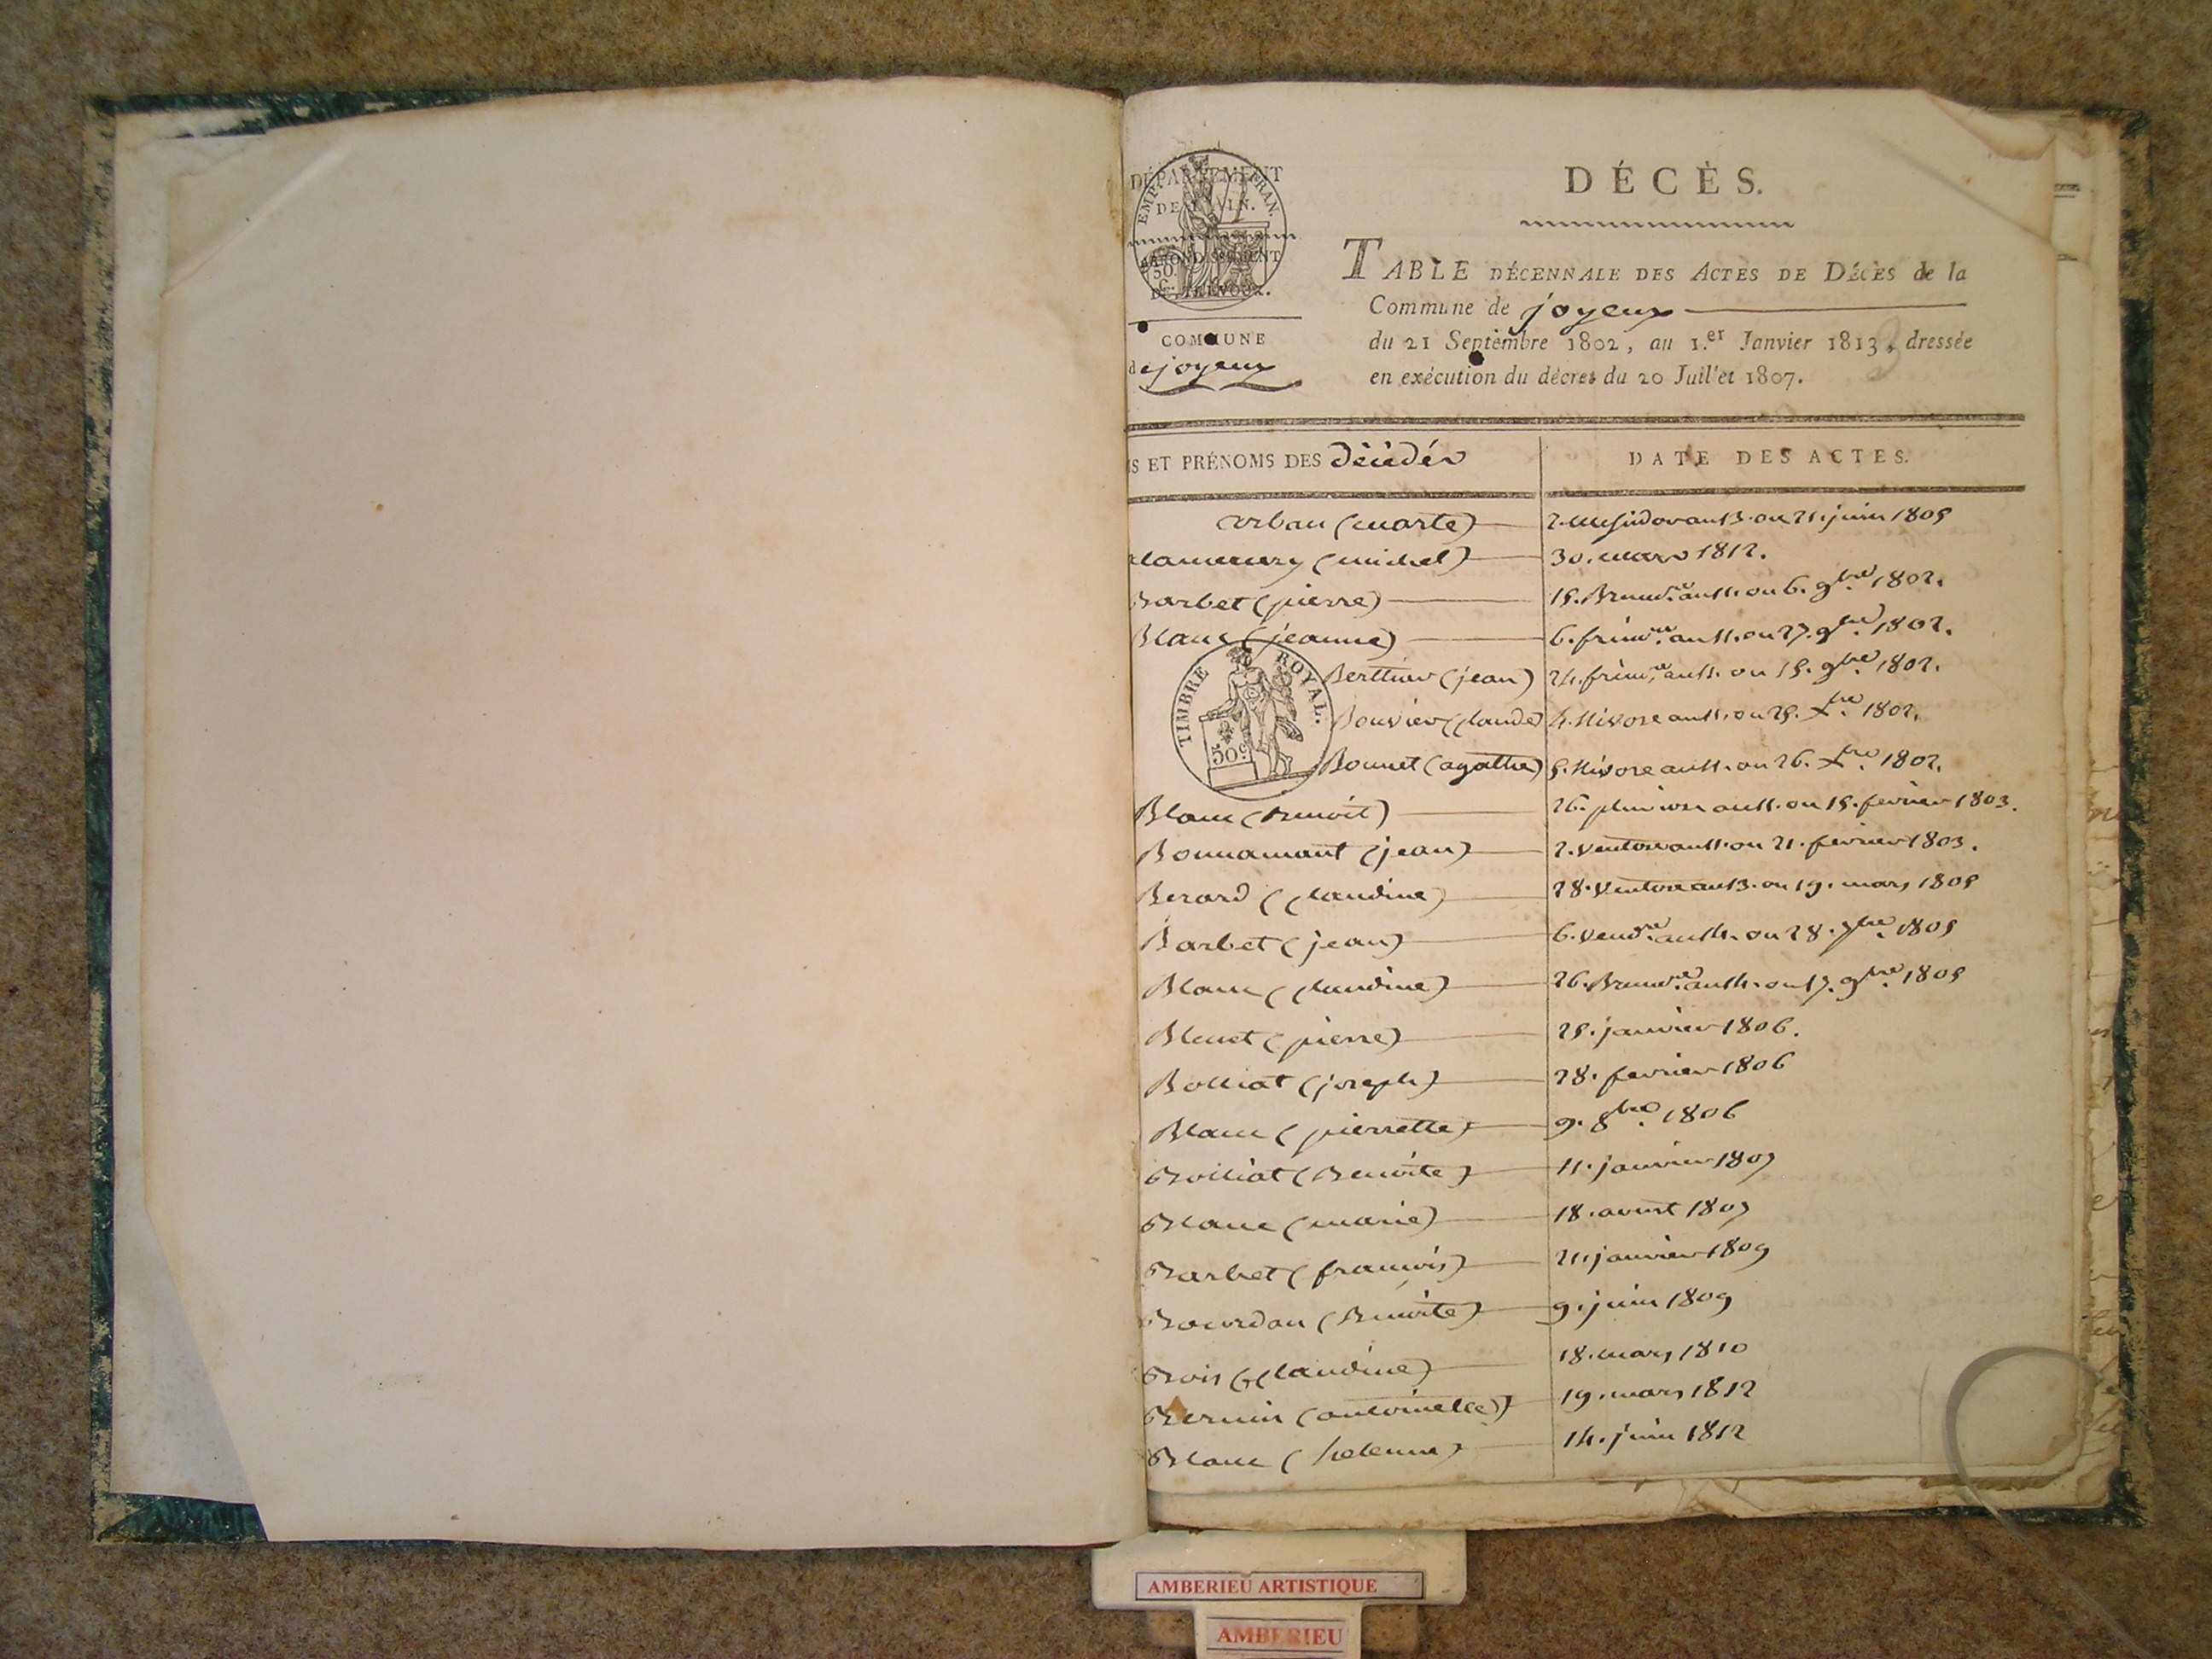 DÉPARTEMENT
DE L'AIN.
ARRONDISSEMENT
DE TRÉVOUX.
EMP. FRAN.
50 C.
COMMUNE
de joyeux
DÉCÈS.
TABLE DÉCENNALE DES ACTES DE DÉCÈS de la
Commune de joyeux
du 21 Septembre 1802, au 1.er Janvier 1813, dressée
en exécution du décret du 20 Juillet 1807.
S ET PRÉNOMS DES décédés
DATE DES ACTES.
Urban (marie) 2. messidor an 13. ou 21. juin 1805
(michel) 30. mars 1812.
Barbet (pierre) 15. Brum.re an 11. ou 6. 9bre 1802.
Blanc (jeanne) 6. frim.re an 11. ou 27. 9bre 1802.
TIMBRE ROYAL.
50 c
Berttier (jean) 24. frim.re an 11. ou 15. 9bre 1802.
Bouvier (Claude) 4. Nivose an 11. ou 25. Xbre 1802.
Bonnet (agathe) 5. Nivose an 11. ou 26. Xbre 1802.
Blanc (Benoit) 26. pluviose an 11. ou 15. fevrier 1803.
Bonnamant (jean) 2. ventose an 11. ou 21. fevrier 1803.
Berard (Claudine) 28. ventose an 13. ou 19. mars 1805
Barbet (jean) 6. vend.re an 14. ou 28. 7bre 1805
Blanc (Claudine) 26. Brum.re an 14. ou 17. 9bre 1805
Blanet (pierre) 25. janvier 1806.
Bolliat (joseph) 28. fevrier 1806
Blanc (pierrette) 9. 8bre 1806
Bolliat (Benoite) 11. janvier 1807
Blanc (marie) 18. aoust 1807
Barbet (francois) 21. janvier 1809
Bourdan (Benoite) 9. juin 1809
Bois (Claudine) 18. mars 1810
Bernin (antoinette) 19. mars 1812
Blanc (helenne) 14. juin 1812
AMBERIEU ARTISTIQUE
AMBERIEU